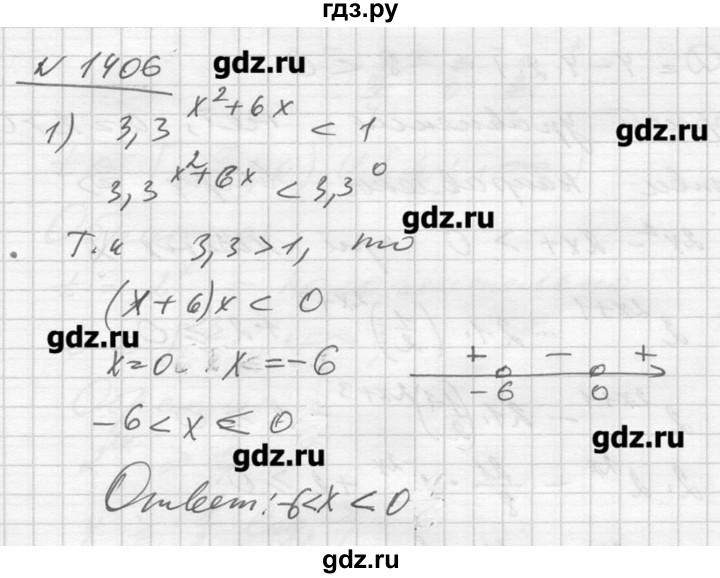 гдз.ру
N 1406
gdz.ru
1) 3,3^(x²+6x) < 1
gdz.ru
3,3^(x²+6x) < 3,3⁰
gdz.ru
Т.к 3,3>1, то
(x+6)x < 0
gdz.ru
x=0 x=-6
+ - +
-6 0
-6<x<0
gdz.ru
gdz.ru
Ответ: -6<x<0
gdz.ru